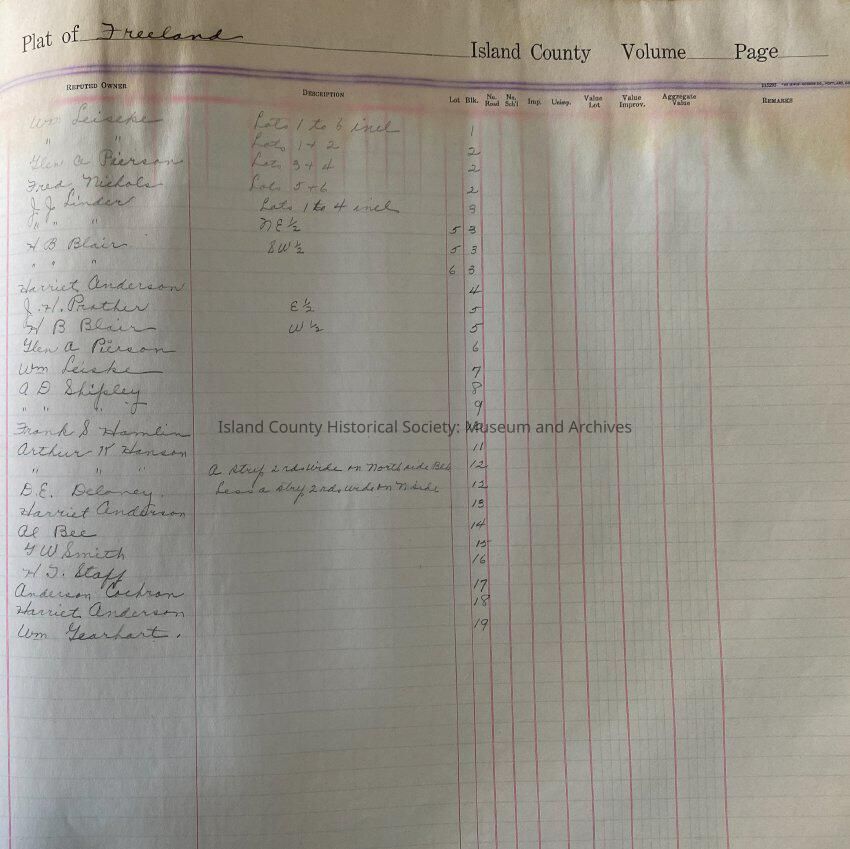 Plat of Freeland Island County Volume Page
REPUTED OWNER DESCRIPTION Lot Blk. No. Road No. Sch'l Imp. Unimp. Value Lot Value Improv. Aggregate Value REMARKS
Wm Leiseke Lots 1 to 6 incl 1
" " Lots 1 + 2 2
Glen A Pierson Lots 3 + 4 2
Fred Nichols Lots 5 + 6 2
J. J. Linder Lots 1 to 4 incl 3
" " " NE ½ 5 3
H B Blair SW ½ 5 3
" " " 6 3
Harriet Anderson 4
J. H. Prather E ½ 5
H B Blair W ½ 5
Glen A Pierson 6
Wm Leiske 7
A D Shipley 8
" " " 9
Frank S Hamlin
Island County Historical Society: Museum and Archives
Arthur W Hanson 11
" " " A strip 2 rds wide on North side Blk 12
D.E. Delaney. Less a strip 2 rds wide on N side 12
Harriet Anderson 13
Al Bee 14
G W Smith 15
H T. Staff 16
Anderson Cochron 17
Harriet Anderson 18
Wm Gearhart. 19